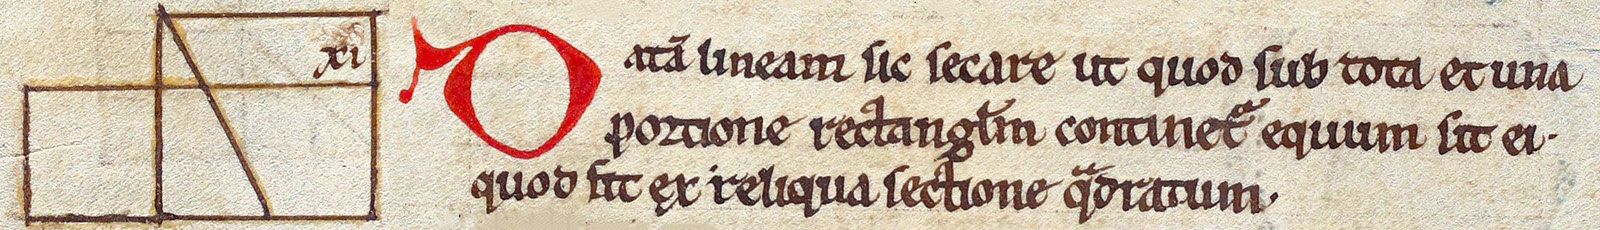 xi
Datā lineam sic secare ut quod sub tota et una
portione rectangl̄m continet᷑ equum sit ei·
quod fit ex reliqua sectione qͣdratum·